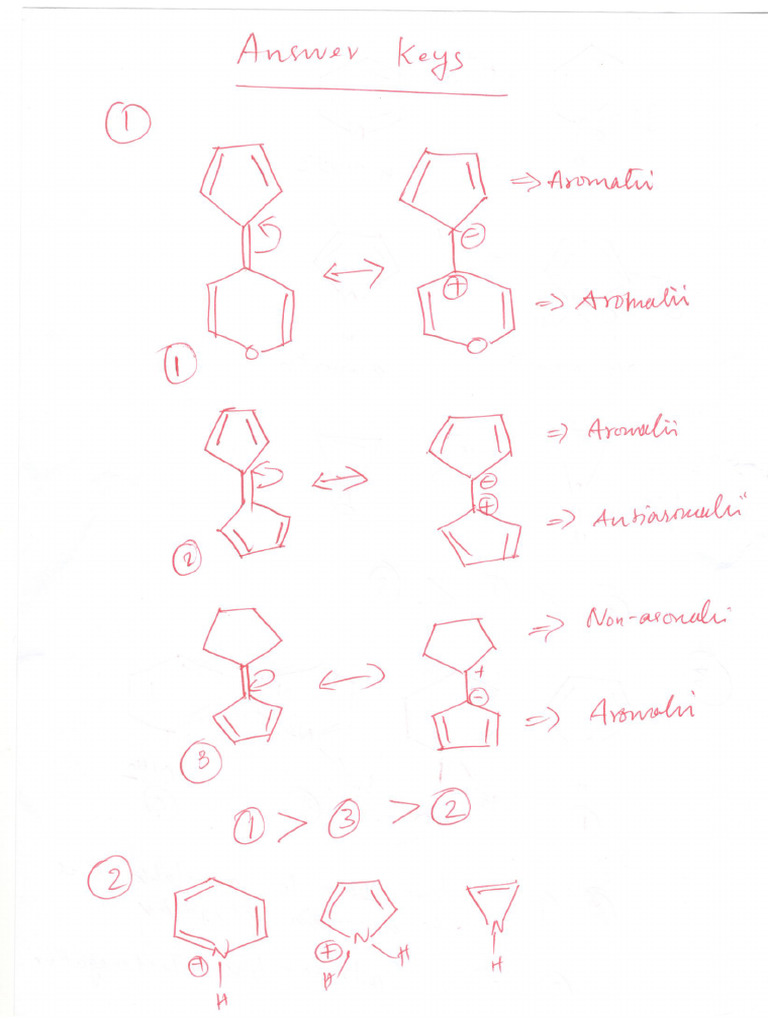 Answer Keys
①
⇒ Aromatic
⊖
⊕
⇒ Aromatic
O
O
①
⇒ Aromatic
⊖
⊕
⇒ Antiaromatic
②
⇒ Non-aromatic
+
⊖
⇒ Aromatic
③
① > ③ > ②
②
N N N
⊕ ⊕
H H H H